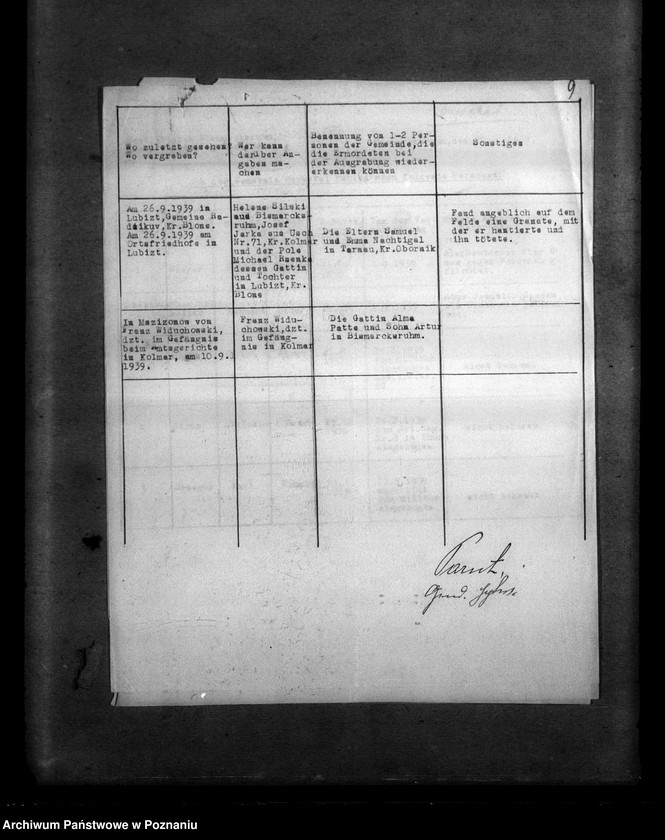 9
Wo zuletzt gesehen?
Wo vergraben?
Wer kann
darüber An-
gaben ma-
chen
Benennung von 1-2 Per-
sonen der Gemeinde, die
die Ermordeten bei
der Ausgrabung wieder-
erkennen können
Sonstiges
Am 26.9.1939 in
Lubizt, Gemeine Ra-
dzikuv, Kr. Blone.
Am 26.9.1939 am
Ortsfriedhofe in
Lubizt.
Helene Bilski
aus Bismarcks-
ruhm, Josef
Jarka aus Usch
Nr.71, Kr. Kolmar
und der Pole
Michael
dessen Gattin
und Tochter
in Lubizt, Kr.
Blone
Die Eltern Samuel
und Emma Nachtigal
in Tarnau, Kr. Obornik
Fand angeblich auf dem
Felde eine Granate, mit
der er hantierte und
ihn tötete.
In Mazizonow von
Franz Widuchowski,
dzt. im Gefängnis
beim Amtsgerichte
in Kolmar, am 10.9.
1939.
Franz Widu-
chowski, dzt.
im Gefäng-
nis in Kolmar
Die Gattin Alma
Patte und Sohn Artur
in Bismarcksruhm.
Archiwum Państwowe w Poznaniu